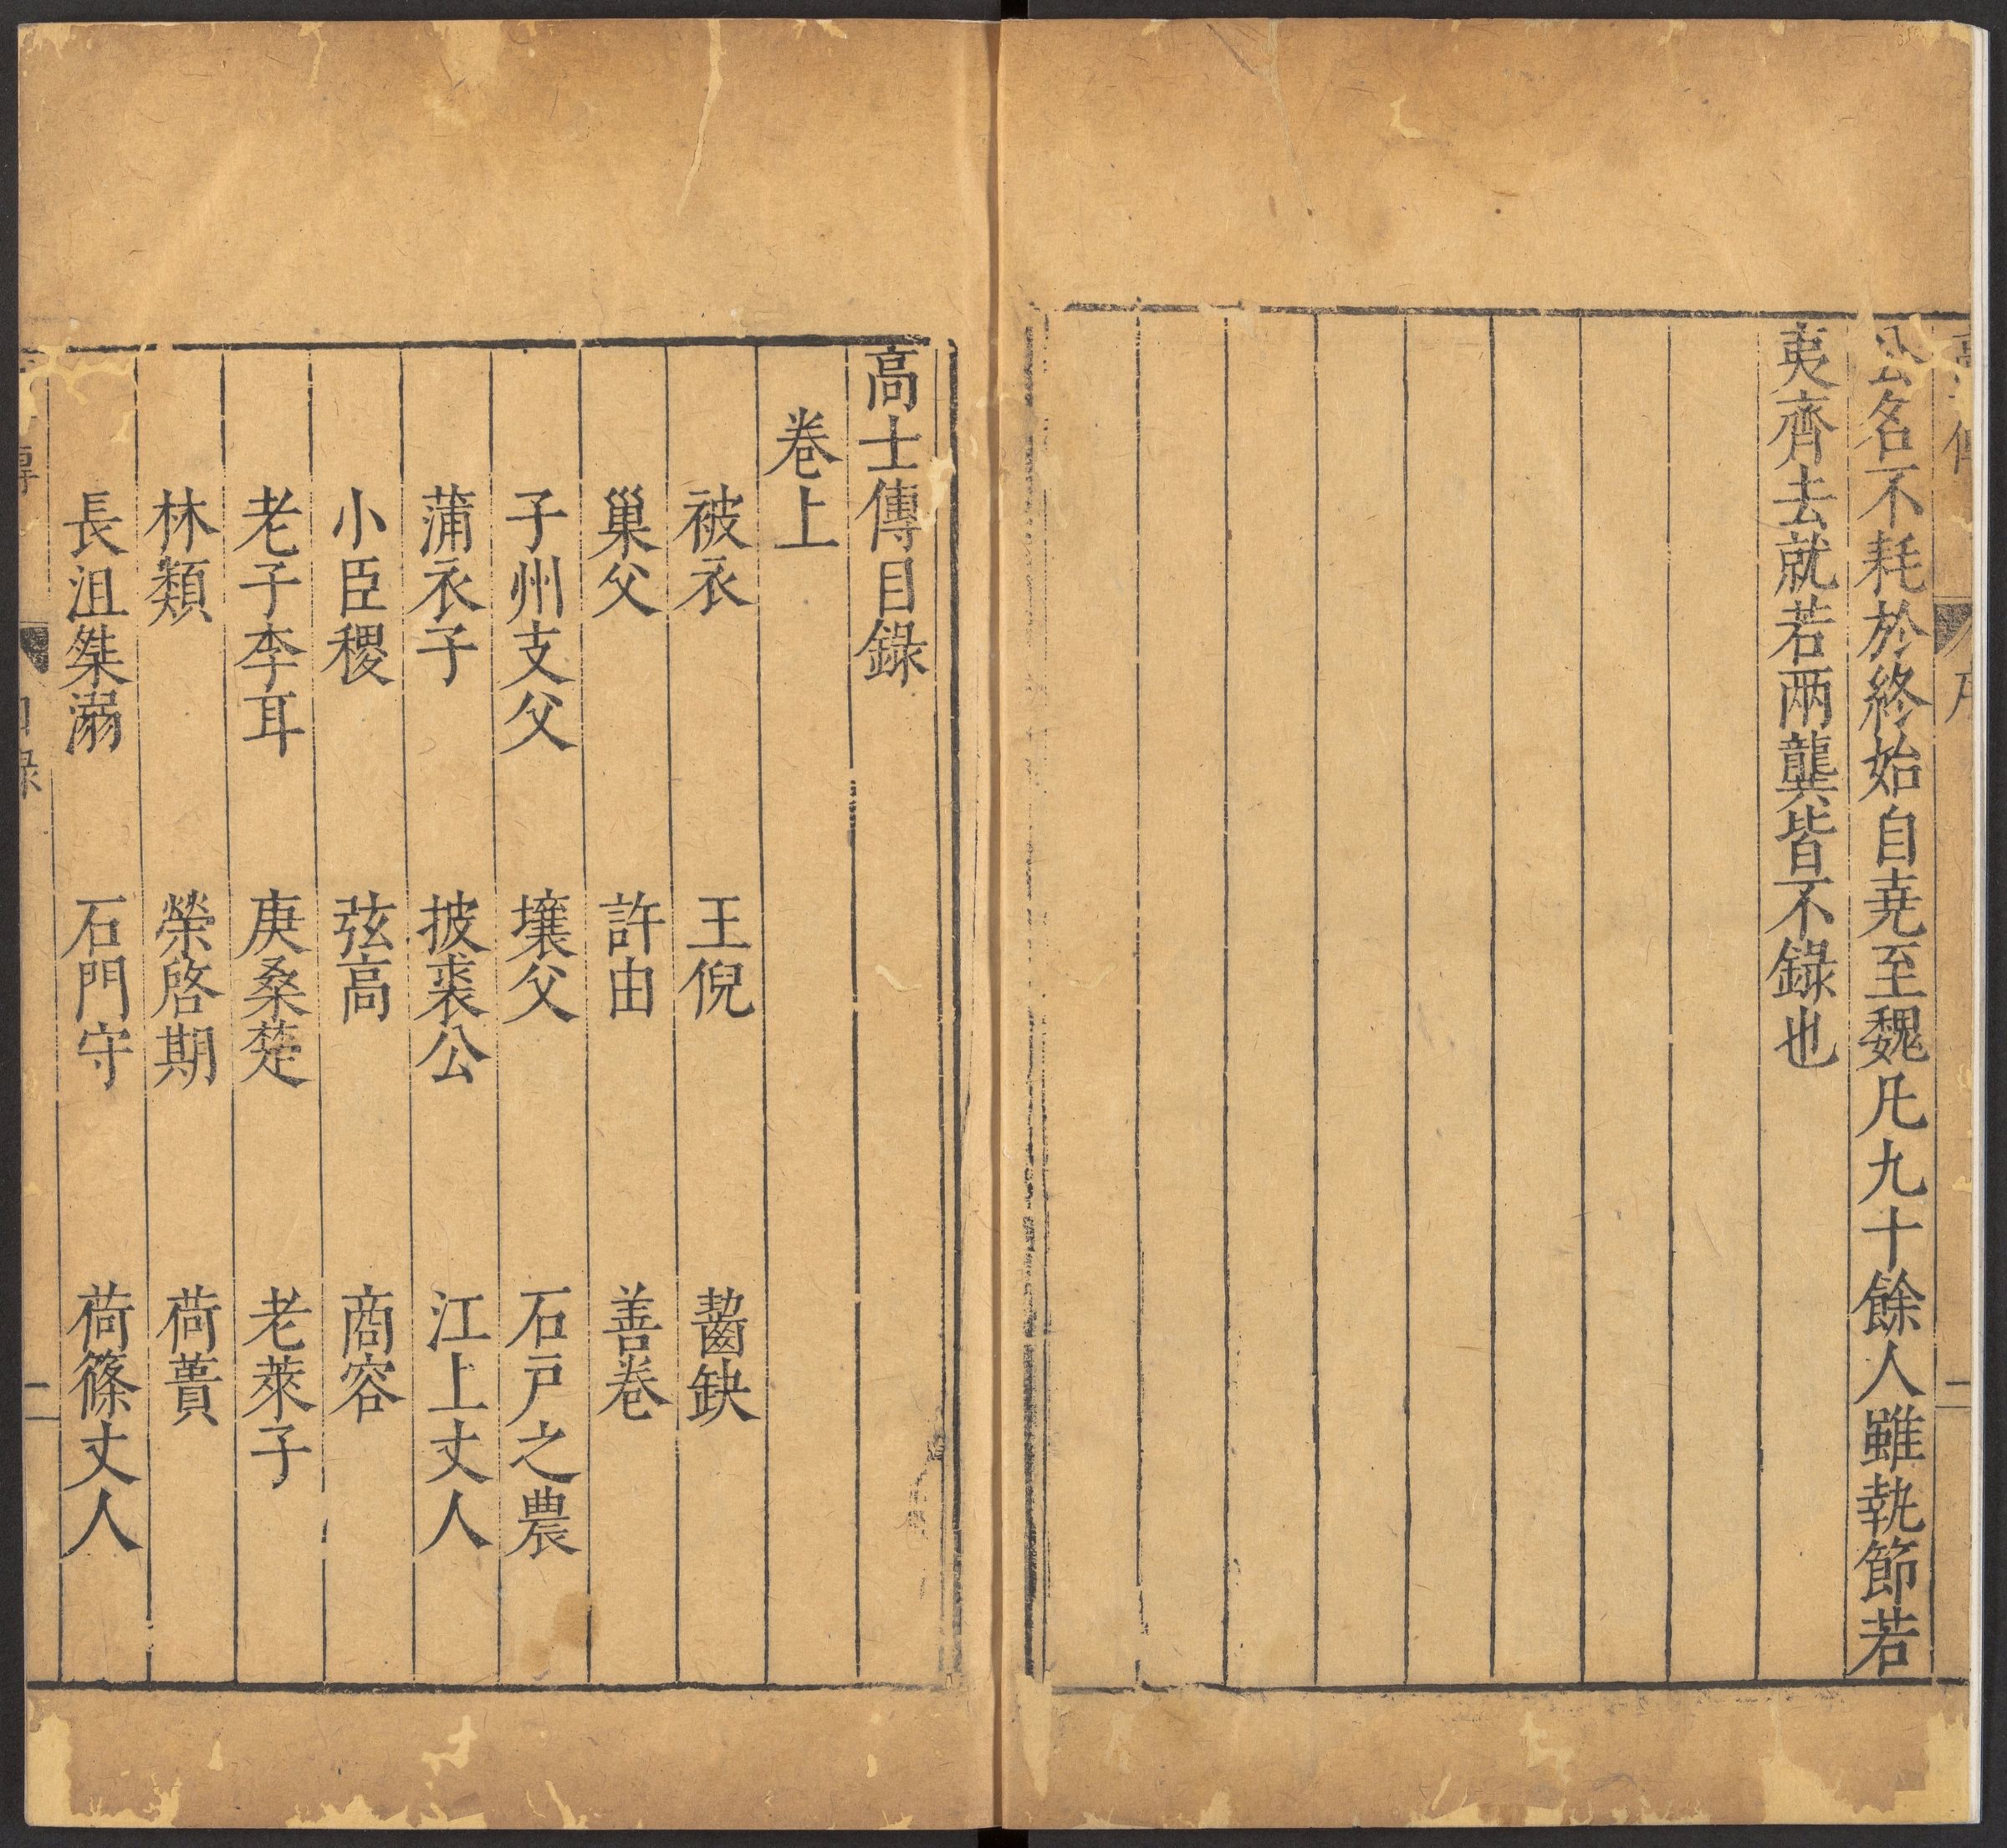 公名不耗於終始自堯至魏凡九十餘人雖執節若
夷齊去就若兩龔皆不錄也
高士傳目錄
卷上
被衣 王倪 齧缺
巢父 許由 善卷
子州支父 壤父 石戶之農
蒲衣子 披裘公 江上丈人
小臣稷 弦高 商容
老子李耳 庚桑楚 老萊子
林類 榮啓期 荷蕢
長沮桀溺 石門守 荷篠丈人
二